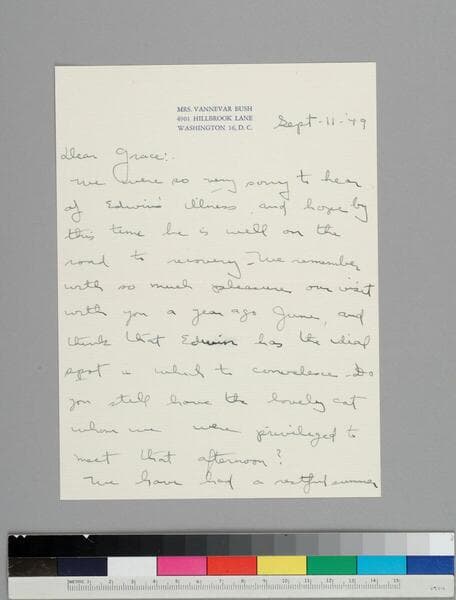 MRS. VANNEVAR BUSH
4901 HILLBROOK LANE
WASHINGTON 16, D. C.
Sept-11-'49
Dear Grace:-
We were so very sorry to hear
of Edwin's illness and hope by
this time he is well on the
road to recovery - We remember
with so much pleasure our visit
with you a year ago June, and
think that Edwin has the ideal
spot in which to convalesce - Do
you still have the lovely cat
whom we were privileged to
meet that afternoon?
We have had a restful summer
METRIC 1 2 3 4 5 6 7 8 9 10 11 12 13 14 15